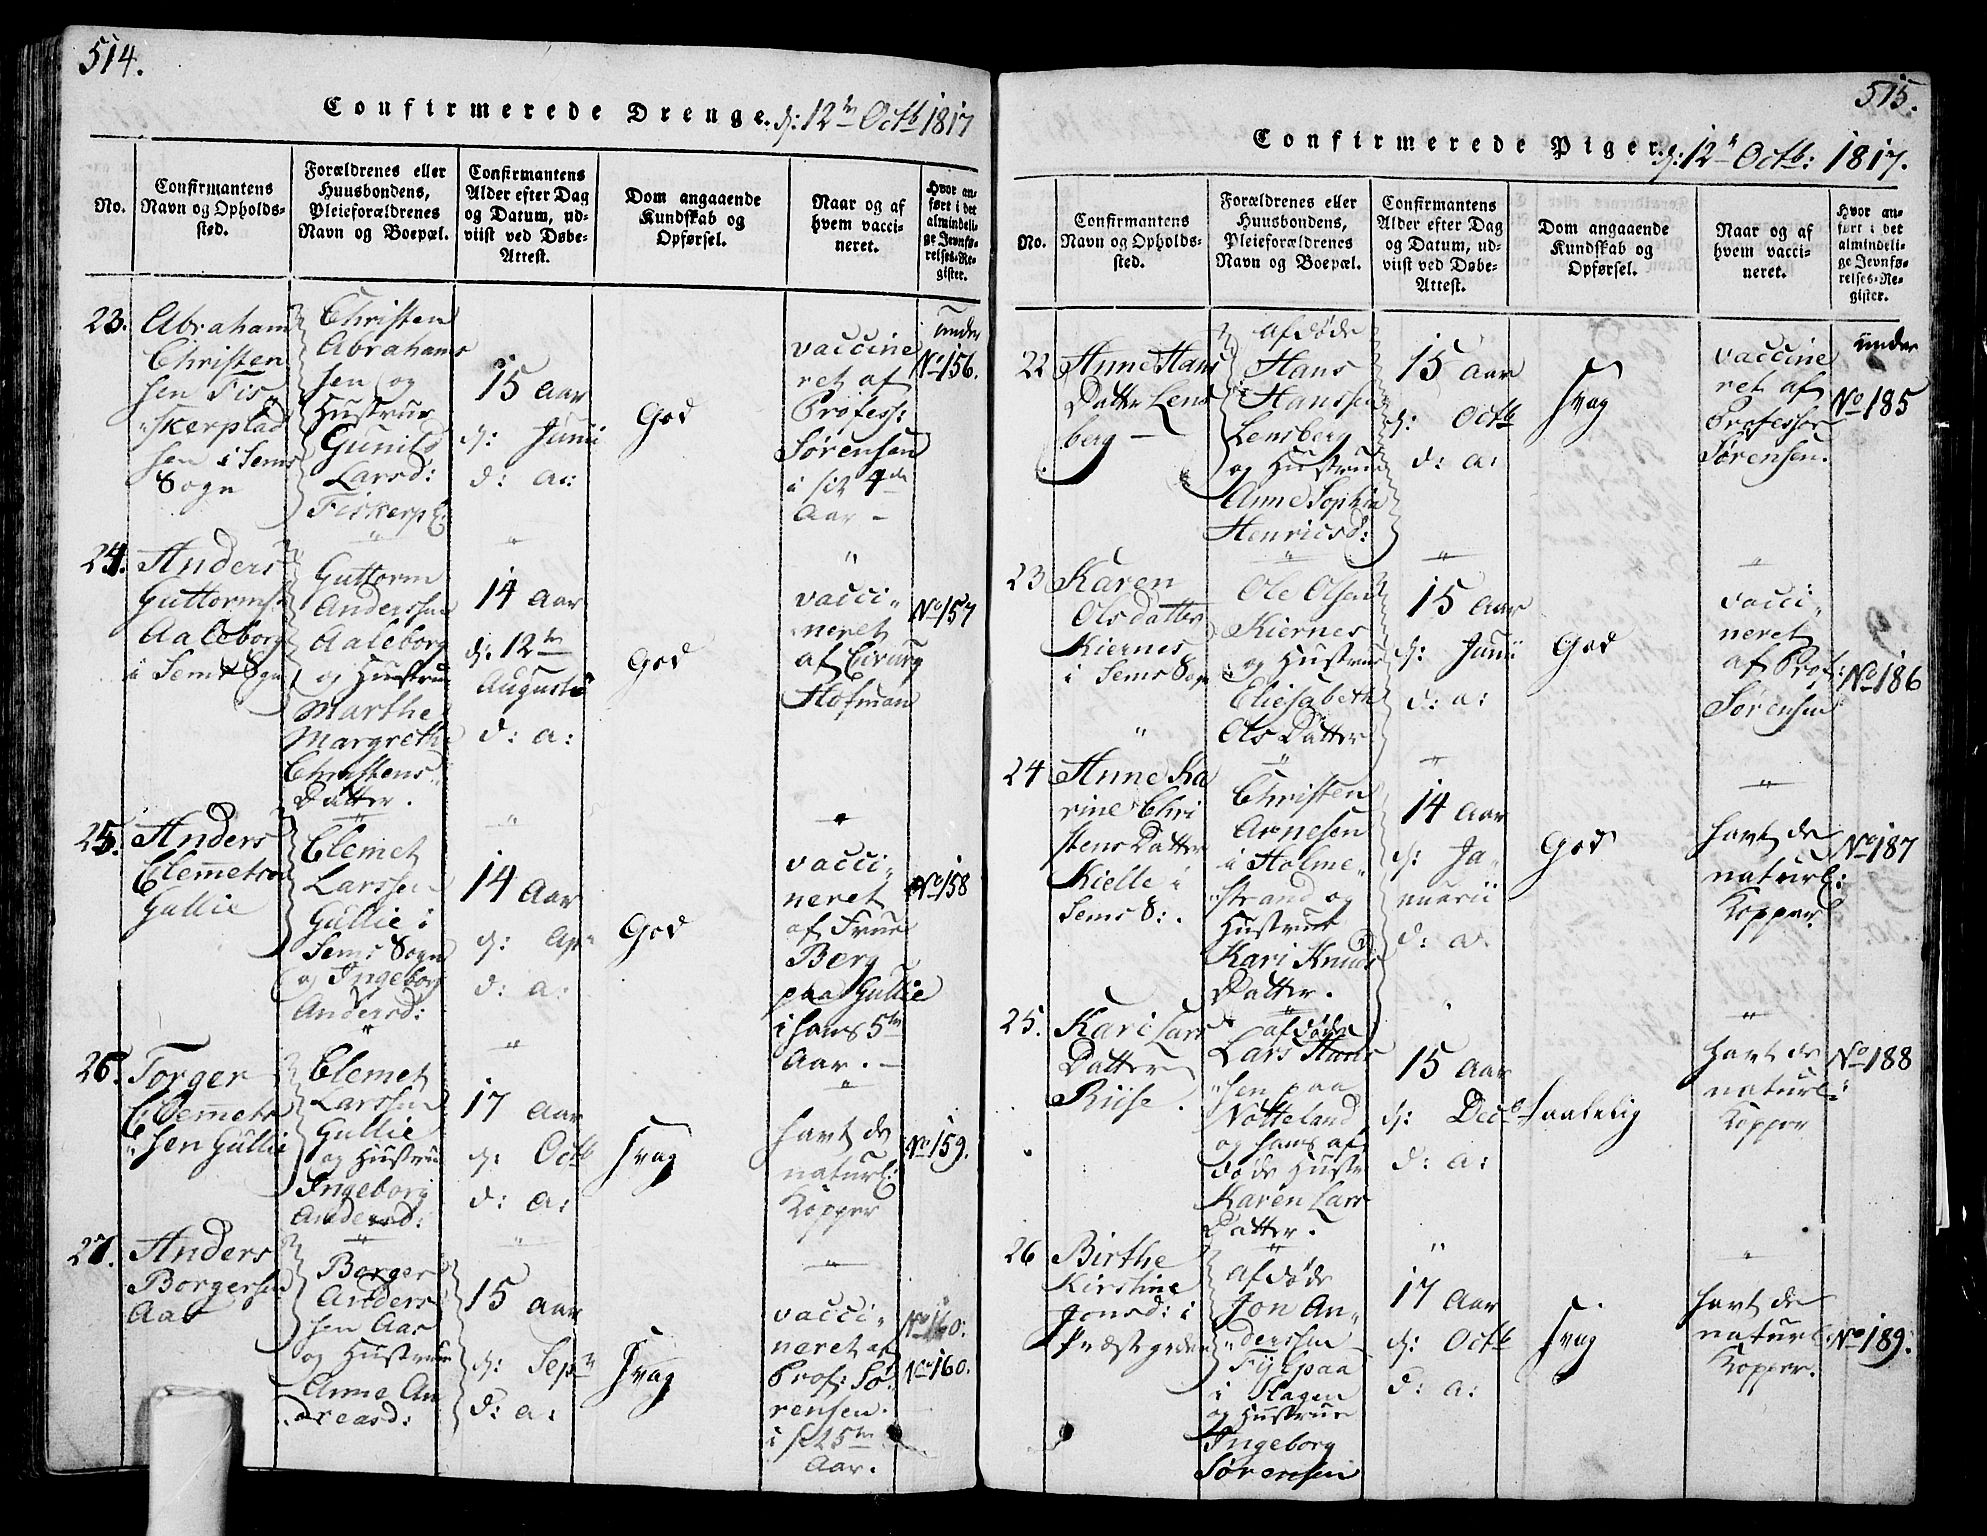 514.
Confirmerede Drenge. d: 12te Octb 1817
No.
Confirmantens
Navn og Opholds-
sted.
Forældrenes eller
Huusbondens,
Pleieforældrenes
Navn og Boepæl.
Confirmantens
Alder efter Dag
og Datum, ud-
viist ved Døbe-
Attest.
Dom angaaende
Kundskab og
Opførsel.
Naar og af
hvem vacci-
neret.
Hvor an-
ført i det
almindeli-
ge Jevnfø-
relses-Re-
gister.
23.
Abraham
Christen
sen Fis„
„kerplad
sen i Sems
Sogn
Christen
Abrahams
sen og
Hustrue
Gunild
Larsd:
Fiskerpl:
15 Aar
d: Junii
d: a:
God
vaccine
ret af
Profess:
Sørensen
i sit 4de
Aar –
under
No 156.
24.
Anders
Guttorms
Aaleborg
i Sems Sogn
Guttorm
Anderssen
Aaleborg
og Hustrue
Marthe
Margrethe
Christens
Datter.
14 Aar
d: 12te
Augusti
d: a:
God
vacci„
neret
af Cirurg
Hofman
No 157
25.
Anders
Clemetsen
Gullie
Clemet
Larssen
Gullie i
Sems Sogn
og Ingeborg
Andersd:
14 Aar
d: Ap:
d: a:
God
vacci„
neret
af Frue
Berg
paa Gullie
i hans 5te
Aar. –
No 158
26.
Torger
Clemets
„sen Gullie
Clemet
Larssen
Gullie
og Hustrue
Ingeborg
Andersd:
17 Aar
d: Octb
d: a:
svag
havt de
naturl:
Kopper
No 159.
27.
Anders
Borgersen
Aas
Borger
Anders
sen Aas
og Hustrue
Anne An
dreasd:
15 Aar
d: Sepr
d: a:
svag
vacci„
neret af
Prof: Sø„
rensen.
i sit 5te
Aar.
No 160.
No 160.
515.
Confirmerede Piger. d: 12te Octb: 1817.
No.
Confirmantens
Navn og Opholds-
sted.
Forældrenes eller
Huusbondens,
Pleieforældrenes
Navn og Boepæl.
Confirmantens
Alder efter Dag
og Datum, ud-
viist ved Døbe-
Attest.
Dom angaaende
Kundskab og
Opførsel.
Naar og af
hvem vacci-
neret.
Hvor an-
ført i det
almindeli-
ge Jevnfø-
relses-Re-
gister.
22
Anne Hans
Datter Lens
berg –
afdøde
Hans
Hanssen
Lensberg
og Hustrue
Anne Sophia
Henricsd:
15 Aar
d: Octb
d: a:
svag
vaccine
ret af
Professor
Sørensen.
under
No 185
23
Karen
Olsdatter
Kiernes
i Sems Sogn
Ole Olsen
Kiernes
og Hustrue
Eliesabeth
Ols Datter
15 Aar
d: Junii
d: a:
God
vacci„
neret
af Prof:
Sørensen
No 186
24
Anne Ka
rine Chri
stens Datter
Kielle i
Sems S:.
Christen
Arnesen
i Holme„
„strand og
Hustrue
Kari Knuds
Datter.
14 Aar
d: Ja„
nuarii
d: a:
God
havt de
naturl:
Kopper
No 187
25.
Kari Lars
Datter
Riise.
afdøde
Lars Hans
„sen paa
Nøtteland
og hans af
døde Hustr
Karen Lars
Datter.
15 Aar
d: Decb
d: a:
Taalelig
havt de
naturl:
Kopper
No 188
26
Birthe
Kirstine
Jonsd: i
Præstgrden
afdøde
Jon An„
„derssen
Fylpaa
i Slagen
og Hustrue
Ingeborg
Sørensen
17 Aar
d: Octb
d: a:
svag
havt de
naturl:
Kopper.
No 189.